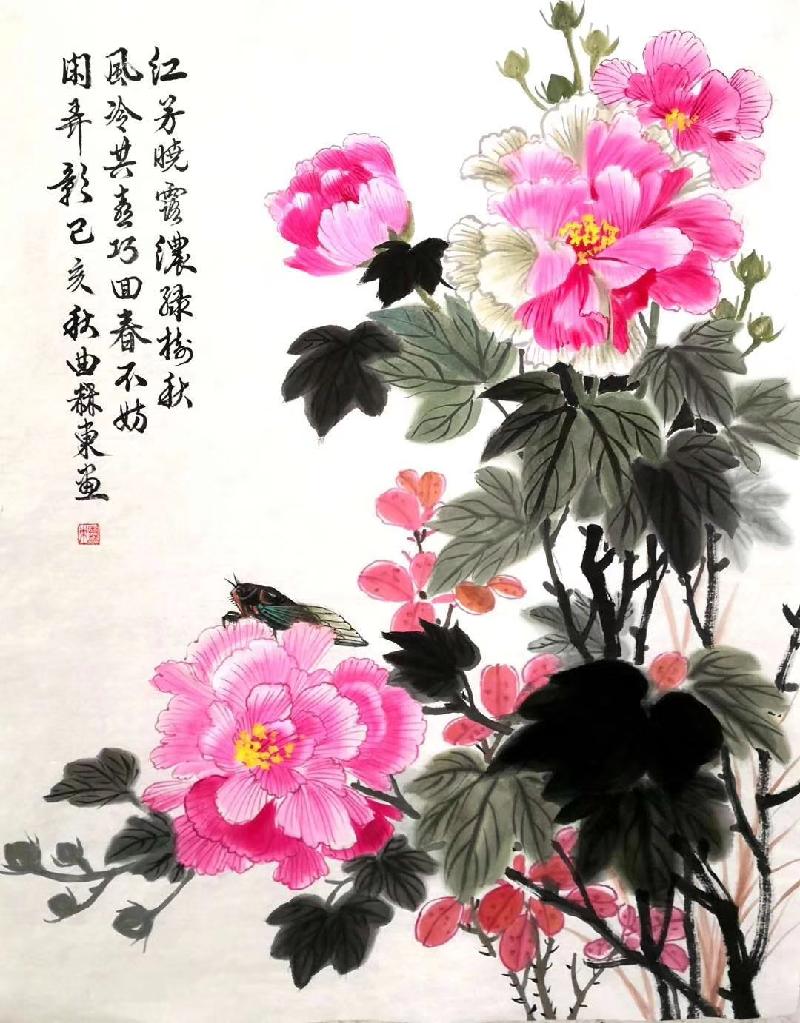 红芳晓露浓绿树秋
风冷共喜巧回春不妨
闲弄影己亥秋曲東画